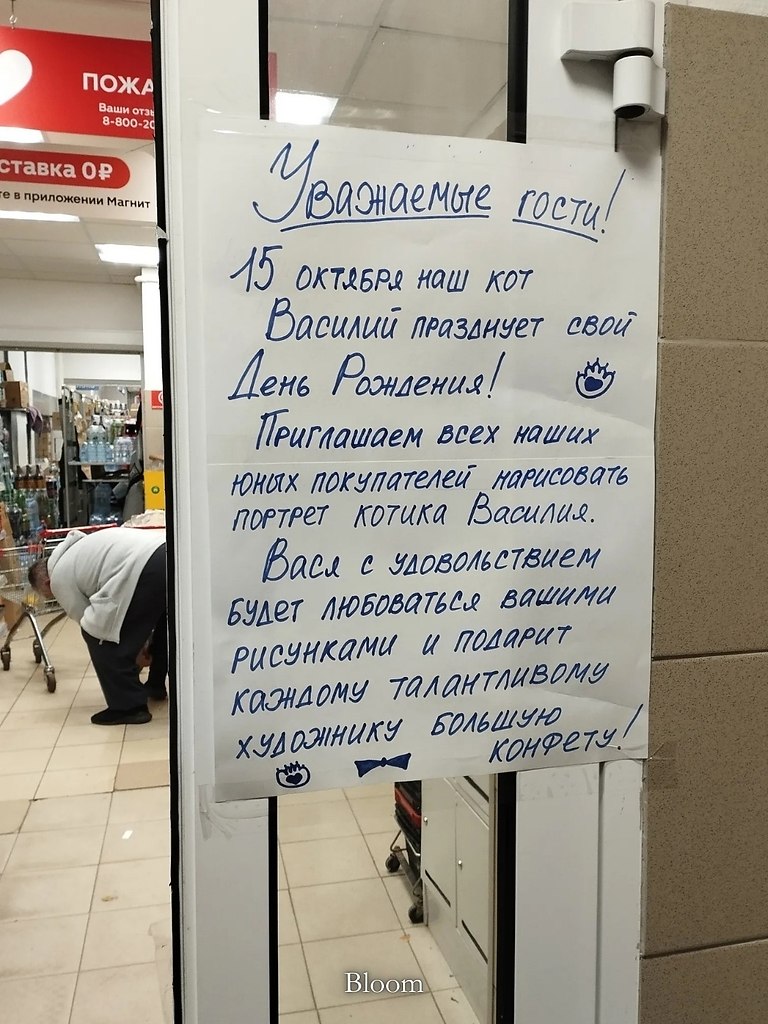 ПОЖА
Ваши отзы
8-800-20
ставка 0₽
те в приложении Магнит
Уважаемые гости!
15 октября наш кот
Василий празднует свой
День Рождения!
Приглашаем всех наших
юных покупателей нарисовать
портрет котика Василия.
Вася с удовольствием
будет любоваться вашими
рисунками и подарит
каждому талантливому
художнику большую
конфету!
Bloom